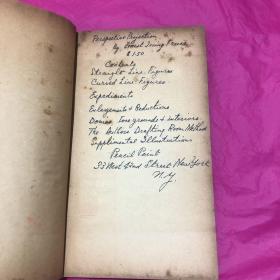 Perspective Projection
by Ernest Irving Freese
$1.50
Contents
Straight Line Figures
Curved Line Figures
Expedients
Enlargements & Reductions
Domes, foregrounds & interiors
The Authors Drafting Room Method
Supplimental Illustrations
Pencil Points
West 42nd Street New York
N.Y.